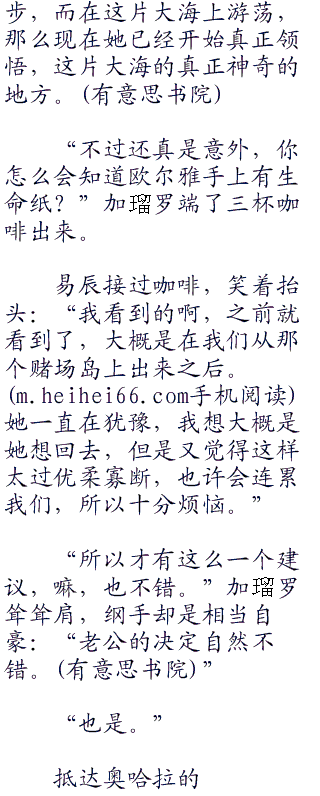 步，而在这片大海上游荡，
那么现在她已经开始真正领
悟，这片大海的真正神奇的
地方。(有意思书院)
“不过还真是意外，你
怎么会知道欧尔雅手上有生
命纸？”加瑠罗端了三杯咖
啡出来。
易辰接过咖啡，笑着抬
头：“我看到的啊，之前就
看到了，大概是在我们从那
个赌场岛上出来之后。
(m.heihei66.com手机阅读)
她一直在犹豫，我想大概是
她想回去，但是又觉得这样
太过优柔寡断，也许会连累
我们，所以十分烦恼。”
“所以才有这么一个建
议，嘛，也不错。”加瑠罗
耸耸肩，纲手却是相当自
豪：“老公的决定自然不
错。(有意思书院)”
“也是。”
抵达奥哈拉的